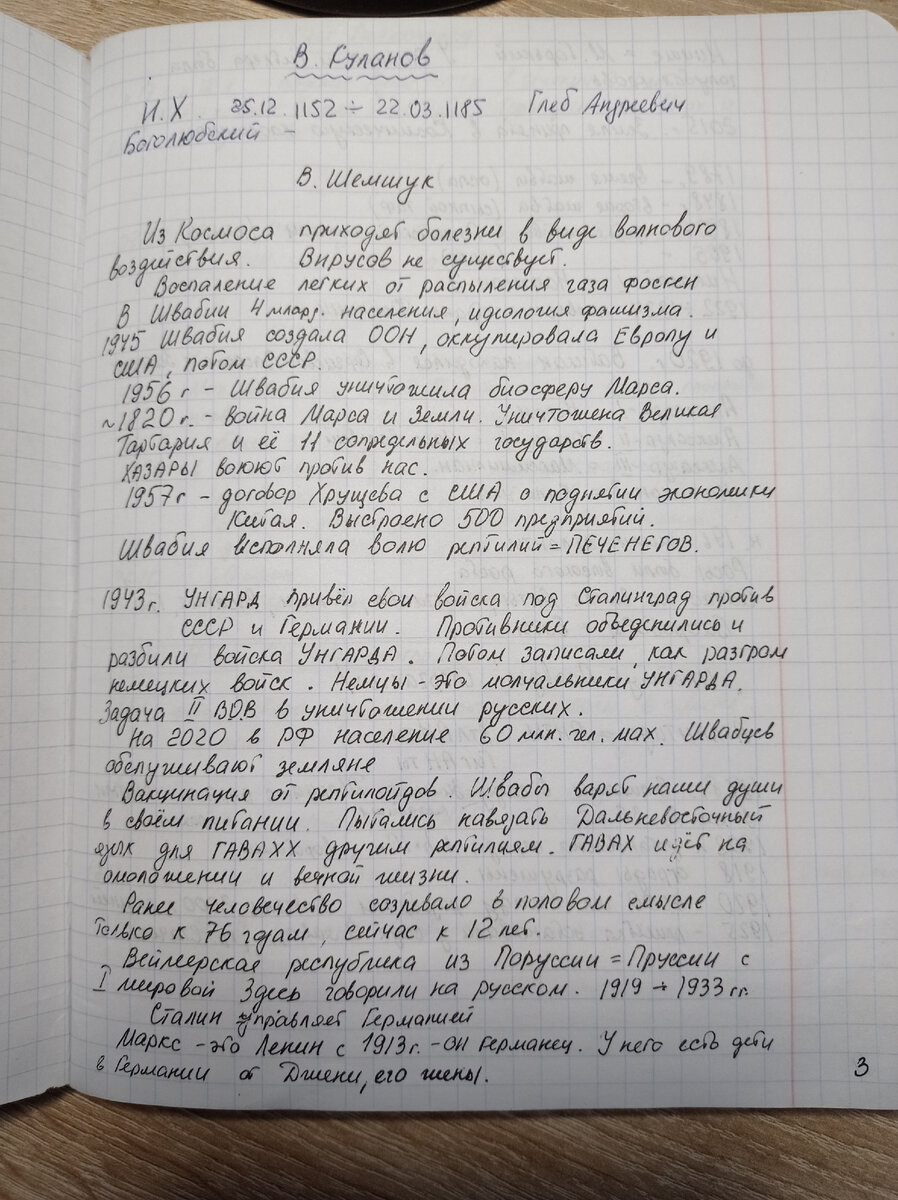 В. Куланов
И.Х. 25.12.1152 ÷ 22.03.1185 Глеб Андреевич
Боголюбский –
В. Шемшук
Из Космоса приходят болезни в виде волнового
воздействия. Вирусов не существует.
Воспаление легких от распыления газа фосген
В Швабии 4 млард. населения, идиология фашизма.
1945 Швабия создала ООН, оккупировала Европу и
США, потом СССР.
1956 г – Швабия уничтожила биосферу Марса.
~1820 г. – война Марса и Земли. Уничтожена Великая
Тартария и её 11 сопредельных государств.
ХАЗАРЫ воюют против нас.
1957 г – договор Хрущева с США о поднятии экономики
Китая. Выстроено 500 предприятий.
Швабия исполняла волю рептилий = ПЕЧЕНЕГОВ.
1943 г. УНГАРД привёл свои войска под Сталинград против
СССР и Германии. Противники объединились и
разбили войска УНГАРДА. Потом записали, как разгром
немецких войск. Немцы – это молчальники УНГАРДА.
Задача II ВОВ в уничтожении русских.
На 2020 в РФ население 60 млн. чел. мах. Швабцев
обслуживают земляне
Вакцинация от рептилойдов. Швабы варят наши души
в своём питании. Пытались навязать Дальневосточный
язык для ГАВАХХ другим рептилиям. ГАВАХ идёт на
омоложении и вечной жизни.
Ранее человечество созревало в половом смысле
только к 76 годам, сейчас к 12 лет.
Веймерская республика из Поруссии = Пруссии с
I мировой Здесь говорили на русском. 1919 → 1933 гг.
Сталин управляет Германией
Маркс – это Ленин с 1913 г. – он германец. У него есть дети
в Германии от Джени, его жены.
3